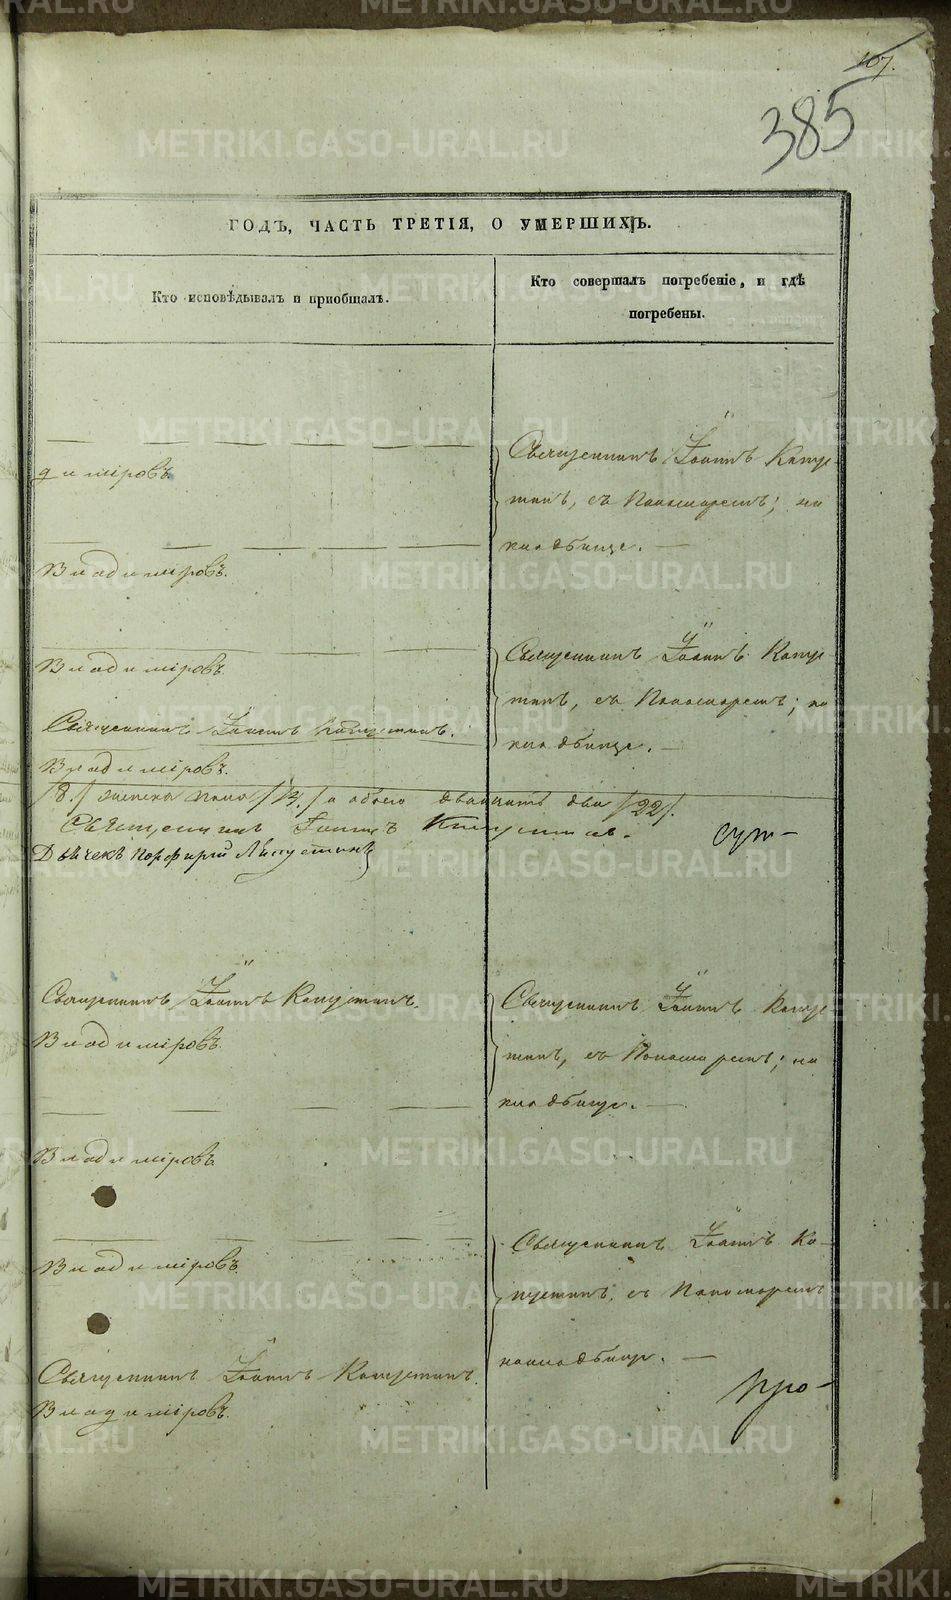 107.
385
ГОДЪ, ЧАСТЬ ТРЕТІЯ, О УМЕРШИХЪ.
Кто исповѣдывалъ и пріобщалъ.
Кто совершалъ погребеніе, и гдѣ
погребены.
димировъ
Священникъ Іоаннъ Капус-
тинъ, съ Пономаремъ; на
кладбище.
Владиміровъ.
Владиміровъ
Священникъ Іоаннъ Капус-
тинъ, съ Пономаремъ; на
кладбище.
Священникъ Іоаннъ Капустинъ.
Владиміровъ.
/8./ женска пола /14/ а обоего двадцать два /22/.
Священникъ Іоаннъ Капустинъ.
Дьячекъ Порфирій Капустинъ
сут-
Священникъ Іоаннъ Капустинъ.
Владиміровъ
Священникъ Іоаннъ Капус-
тинъ, съ Пономаремъ; на
кладбище.
Владиміровъ
Владиміровъ
Священникъ Іоаннъ Ка-
пустинъ, съ Пономаремъ
на кладбище.
Священникъ Іоаннъ Капустинъ.
Владиміровъ.
про-
METRIKI.GASO-URAL.RU